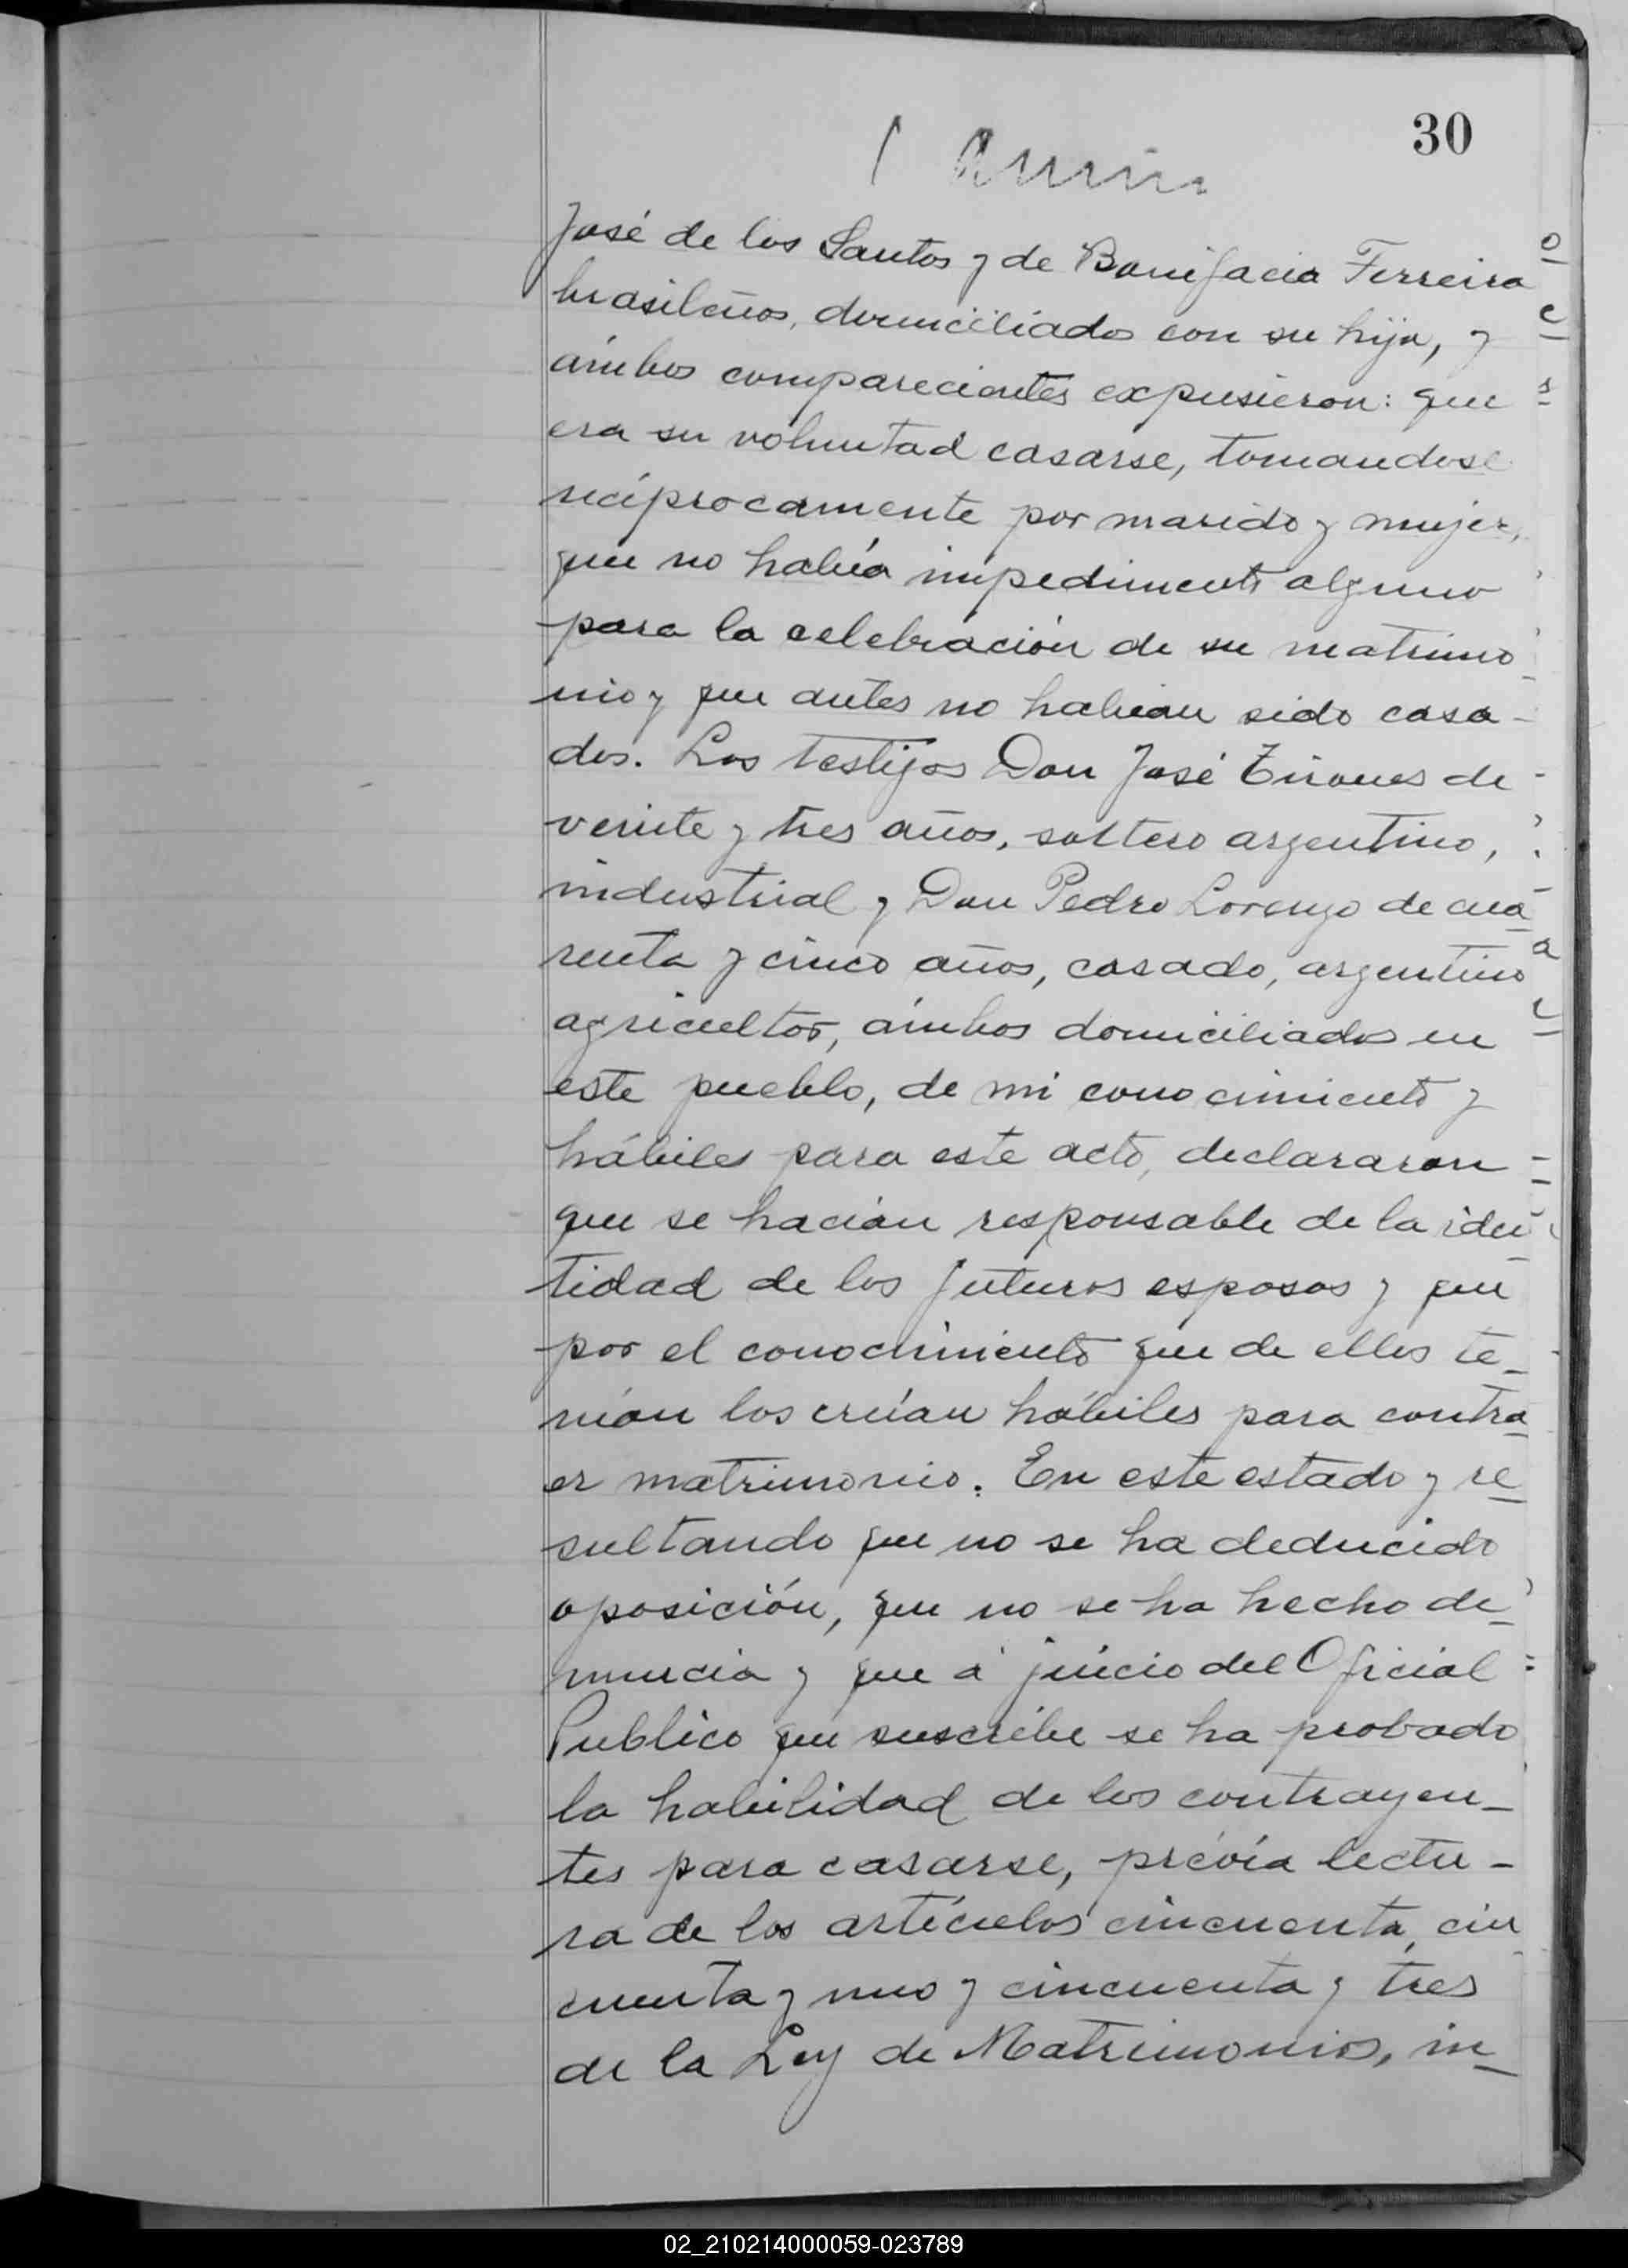 30
José de los Santos y de Bonifacia Ferreira
brasileños, domiciliados con su hija, y
ámbos comparecientes expusieron: que
era su voluntad casarse, tomandose
recíprocamente por marido y mujer,
que no había impedimento alguno
para la celebración de su matrimo
nio y que antes no habían sido casa-
dos. Los testigos Don José de
veinte y tres años, soltero argentino,
industrial y Don Pedro Lorenzo de cua
renta y cinco años, casado, argentino
agricultor, ámbos domiciliados en
este pueblo, de mi conocimiento y
hábiles para este acto, declararon
que se hacían responsable de la iden
tidad de los futuros esposos y que
por el conocimiento que de ellos te-
nían los creían hábiles para contra
er matrimonio. En este estado y re
sultando que no se ha deducido
oposición, que no se ha hecho de-
nuncia y que á juicio del Oficial
Publico que suscribe se ha probado
la habilidad de los contrayen-
tes para casarse, prévia lectu-
ra de los artículos cincuenta, cin
cuenta y uno y cincuenta y tres
de la Ley de Matrimonios, in-
02_210214000059-023789